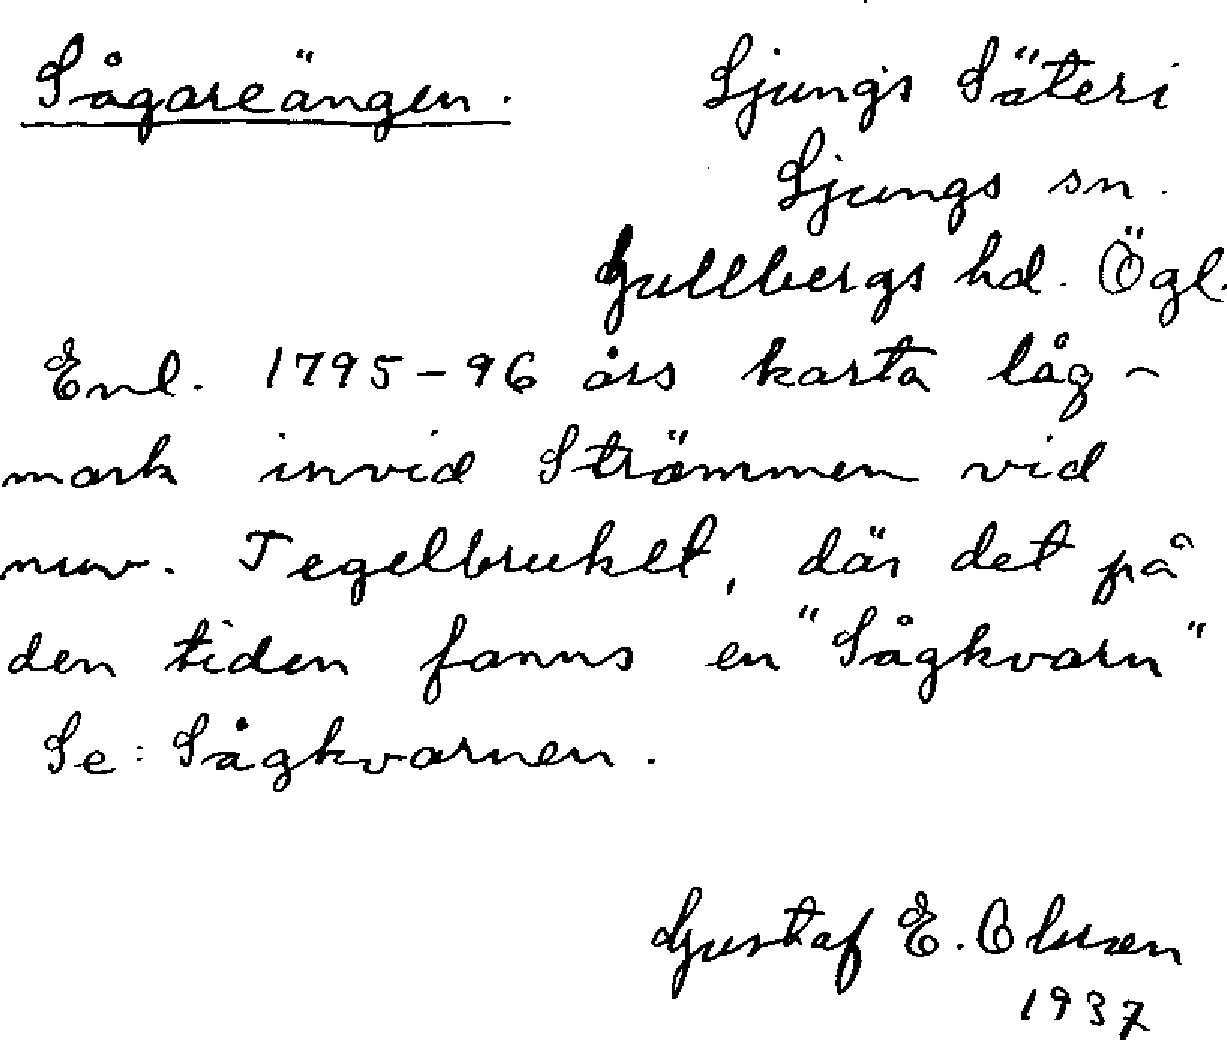 Sågareängen. Ljungs Säteri
Ljungs sn.
Gullbergs hd. Ögl.
Enl. 1795-96 års karta låg-
mark invid Strömmen vid
nuv. Tegelbruket, där det på
den tiden fanns en "Sågkvarn"
Se: Sågkvarnen.
Gustaf E.
1937